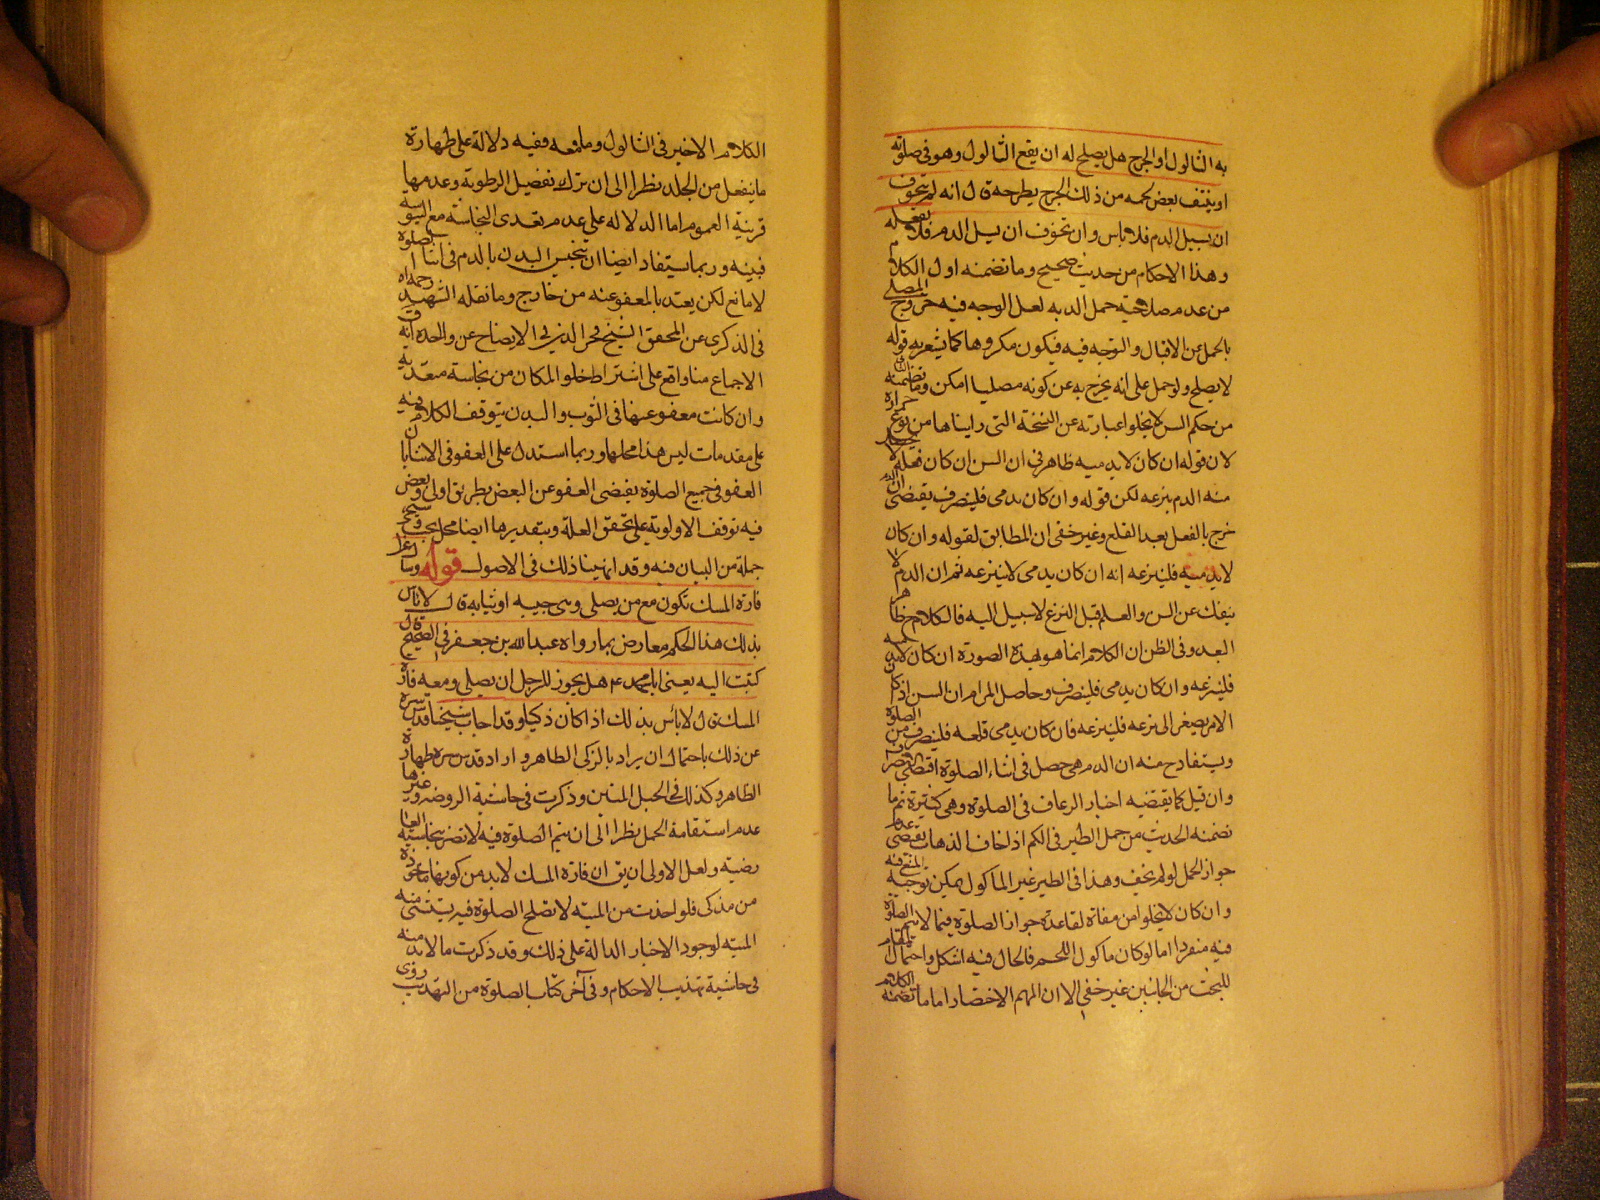 به الثالول او الجرح هل يصلح له ان يقع الثالول وهو في صلوته
او ينتف بعض لحمه من ذلك الجرح يطرحه قال ان لم يتخوف
ان يسيل الدم فلا باس وان تخوف ان يسيل الدم فلا يفعله
وهذا الاحكام من حديث صحيح وما تضمنه اول الكلام
من عدم صلاحية حمل الدبه لعل الوجه فيه خروج المصلى
بالحمل عن الاقبال والتوجه فيه فيكون مكروها كما يشعر به قوله
لا يصلح ولو حمل على انه يخرج به عن كونه مصليا امكن وما تضمنه
من حكم السن لا يخلوا عبارته عن النسخة التى رايناها من نوع حزازة
لان قوله ان كان لا يدميه ظاهر في ان السن ان كان فعله لا يحصل
منه الدم ينزعه لكن قوله وان كان يدمى فلينصرف يقتضى ان الدم
خرج بالفعل بعد القلع وغير خفى ان المطابق لقوله وان كان
لا يدميه فلينزعه انه ان كان يدمى لا ينزعه ثم ان الدم لا
ينفك عن السن والعلم قبل النزع لا سبيل اليه فالكلام ظاهر
البعد وفى الظن ان الكلام انما هو بهذه الصورة ان كان لا يدميه
فلينزعه وان كان يدمى فلينصرف وحاصل المرام ان السن اذ كان
الامر يصغر الى نزعه فلينزعه فان كان يدمى قلعه فلينصرف من الصلوة
ويستفاد ح منه ان الدم متى حصل في اثناء الصلوة اقتضى
وان قيل كما يقتضيه اخبار الرعاف في الصلوة وهي كثيرة ثم ما
تضمنه الحديث من حمل الطير في الكم اذا خاف الذهاب يقتضى عدم
جواز الحمل لو لم يخف وهذا في الطير غير الماكول يمكن توجيه المنع فيه
وان كان لا يخلوا من منافاة لقاعدة جواز الصلوة فيما لا يتم الصلوة
فيه منفردا اما لو كان ماكول اللحم فالحال فيه اشكل واحتمال المقام
للبحث من الجانبين غير خفى الا ان المهم الاختصار اما ما تضمنه الكلام
الكلام الاخير في الثالول وما معه ففيه دلالة على طهارة
ما ينفصل من الجلد نظرا الى ان ترك تفصيل الرطوبة وعدمها
قرينة العموم اما الدلالة على عدم تعدى النجاسة مع اليبوسة
فبينه وربما يستفاد ايضا ان تنجيس البدن بالدم في اثناء الصلوة
لا مانع لكن يعتد بالمعفو عنه من خارج وما نقله الشهيد رحمه الله
في الذكرى عن المحقق الشيخ فخر الدين في الايضاح عن والده انه
الاجماع منا واقع على اشتراط خلو المكان من نجاسة متعدية
وان كانت معفو عنها في الثوب والبدن يتوقف الكلام فيه
على مقدمات ليس هذا محلها وربما استدل على العفو في الاثناء بان
العفو في جميع الصلوة يقتضى العفو عن البعض بطريق اولى وبعض
فيه توقف الاولوية على تحقق العلة وبتقديرها ايضا محل بحث
جملة من البيان فيه وقد انهينا ذلك في الاصول قوله وسأل عن
فارة المسك تكون مع من يصلى وهى جيبه او ثيابه قال لا باس
بذلك هذا الحكم معارض بما رواه عبد الله بن جعفر في الصحيح قال
كتبت اليه يعنى ابا محمد ع هل يجوز للرجل ان يصلى ومعه فارة
المسك قال لا بأس بذلك اذا كان ذكيا وقد اجاب شيخنا قدس سره
عن ذلك باحتمال ان يراد بالزكى الطاهر واراد قدس سره طهارة
الطاهر وكذلك في الحبل المتين وذكرت في حاشية الروضة وغيرها
عدم استقامة الحمل نظرا الى ان يتم الصلوة فيه لا تضر نجاسته
رضيه ولعل الاولى ان يق ان فارة المسك لا بد من كونها ماخوذة
من مذكى فلو اخذت من الميته لا تصلح الصلوة فيه يستثنى منه
الميته لوجود الاخبار الدالة على ذلك وقد ذكرت ما لا بد منه
في حاشية تهذيب الاحكام وفي آخر كتاب الصلوة من التهذيب روى